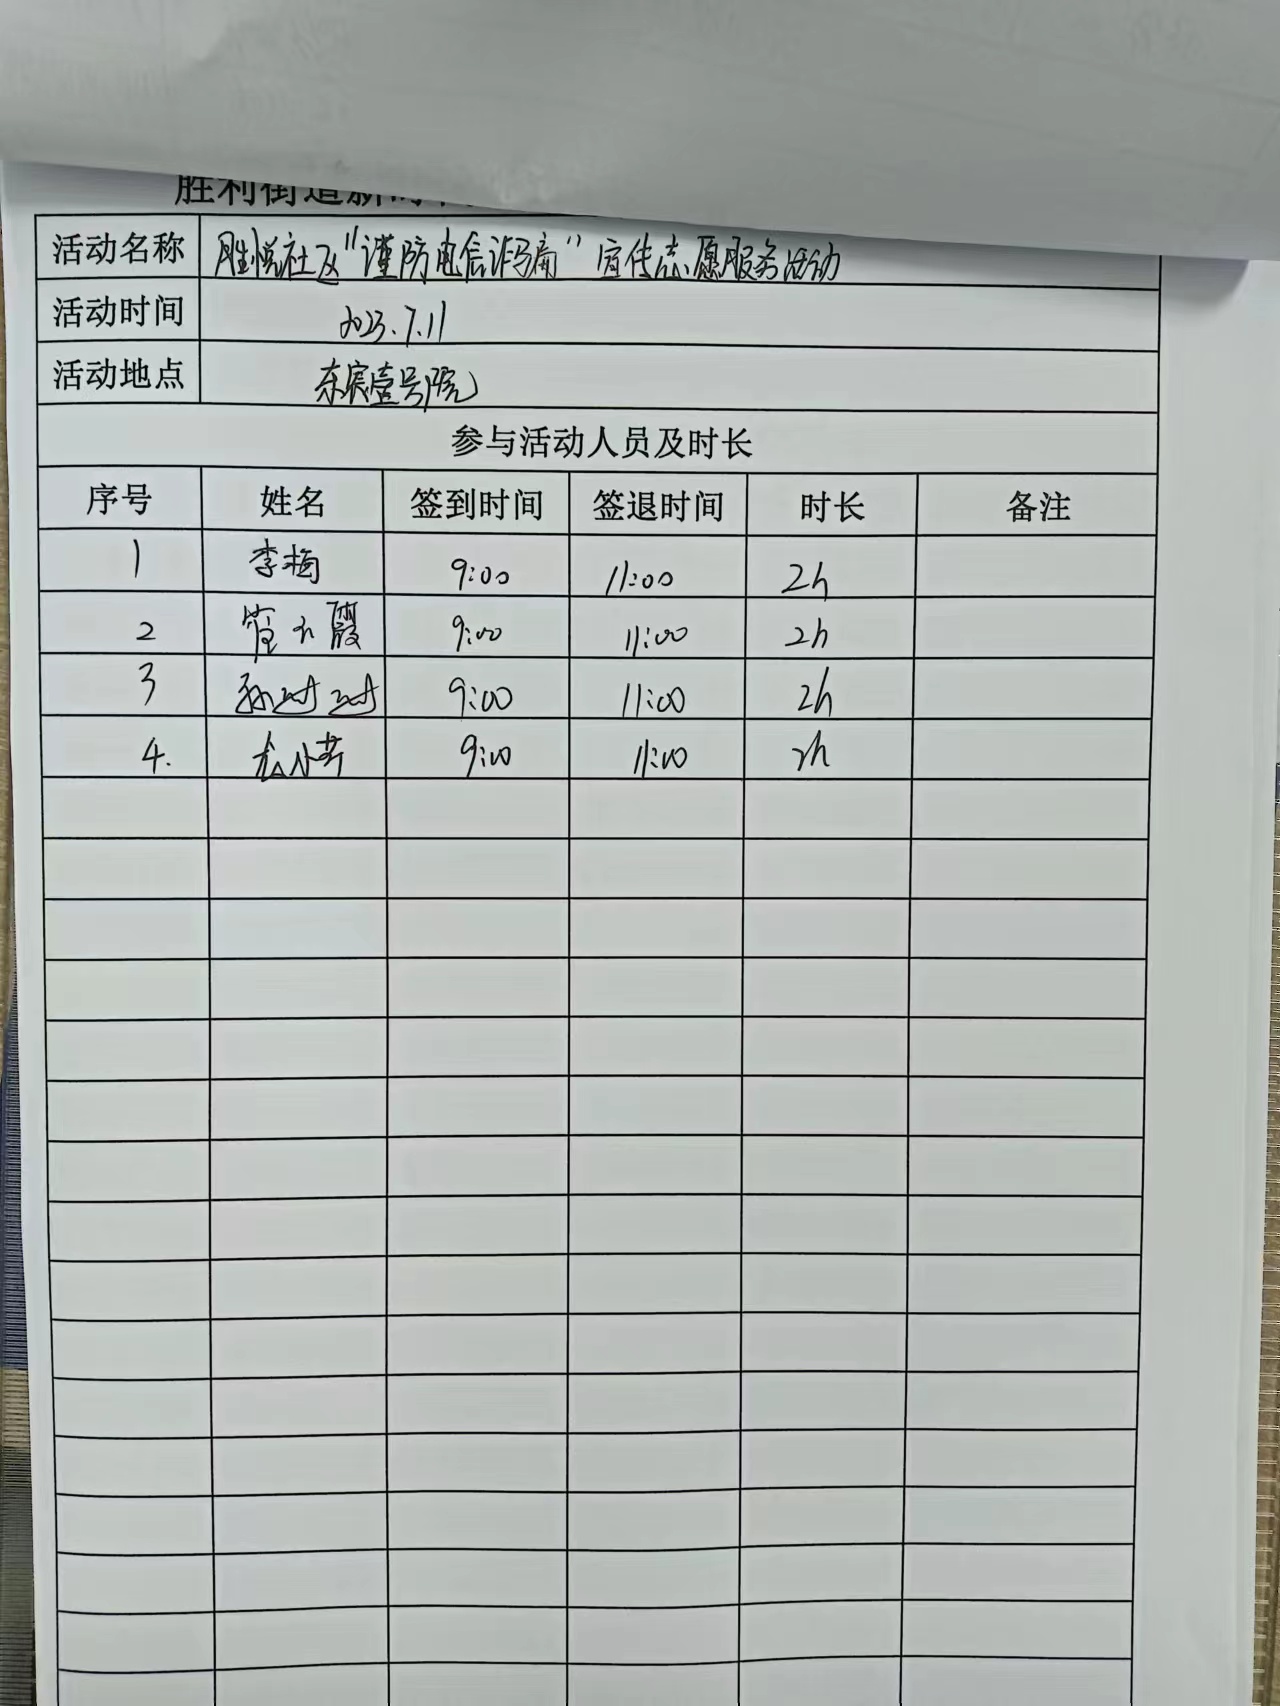 胜利街道新时
活动名称 胜悦社区“谨防电信诈骗”宣传志愿服务活动
活动时间 2023.7.11
活动地点 东宸壹号院
参与活动人员及时长
序号 姓名 签到时间 签退时间 时长 备注
1 李梅 9:00 11:00 2h
2 霞 9:00 11:00 2h
3 孙 9:00 11:00 2h
4. 尤小芹 9:00 11:00 2h